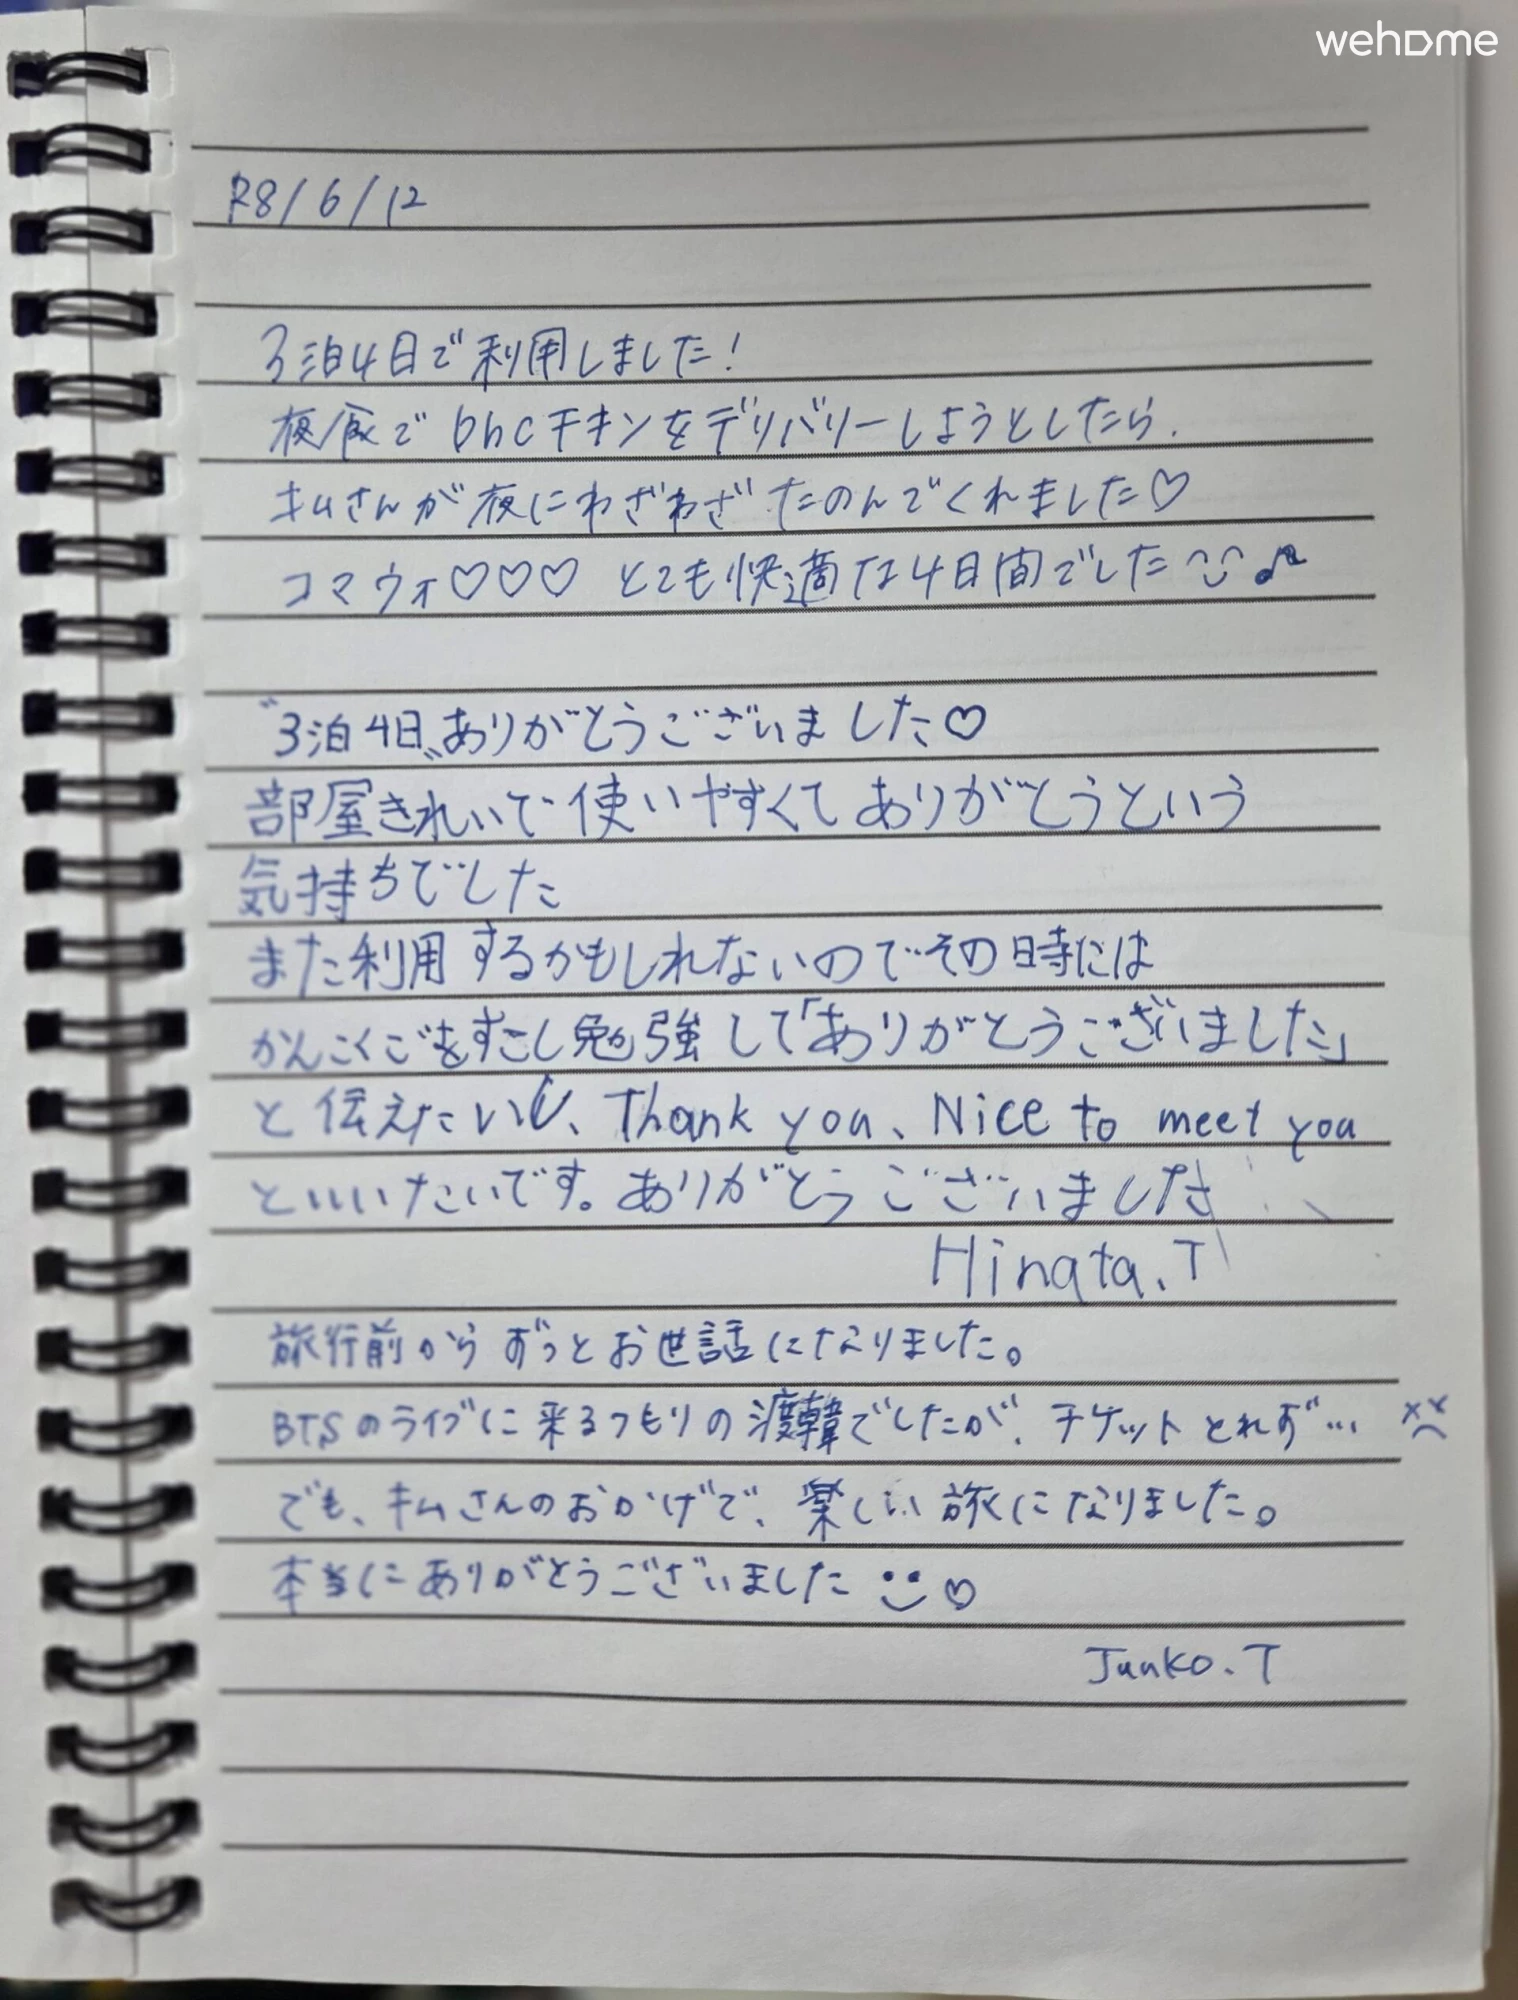 wehome
R8/6/12
3泊4日で利用しました!
夜食でbhcチキンをデリバリーしようとしたら、
キムさんが夜にわざわざたのんでくれました♡
コマウォ♡♡♡ とても快適な4日間でした♪
"3泊4日"ありがとうございました♡
部屋きれいで使いやすくてありがとうという
気持ちでした
また利用するかもしれないのでその時には
かんこくごをすこし勉強して「ありがとうございました」
と伝えたいし、Thank you、Nice to meet you
といいたいです。ありがとうございました
Hinata.T
旅行前からずっとお世話になりました。
BTSのライブに来るつもりの渡韓でしたが、チケットとれず…
でも、キムさんのおかげで、楽しい旅になりました。
本当にありがとうございました♡
Junko.T